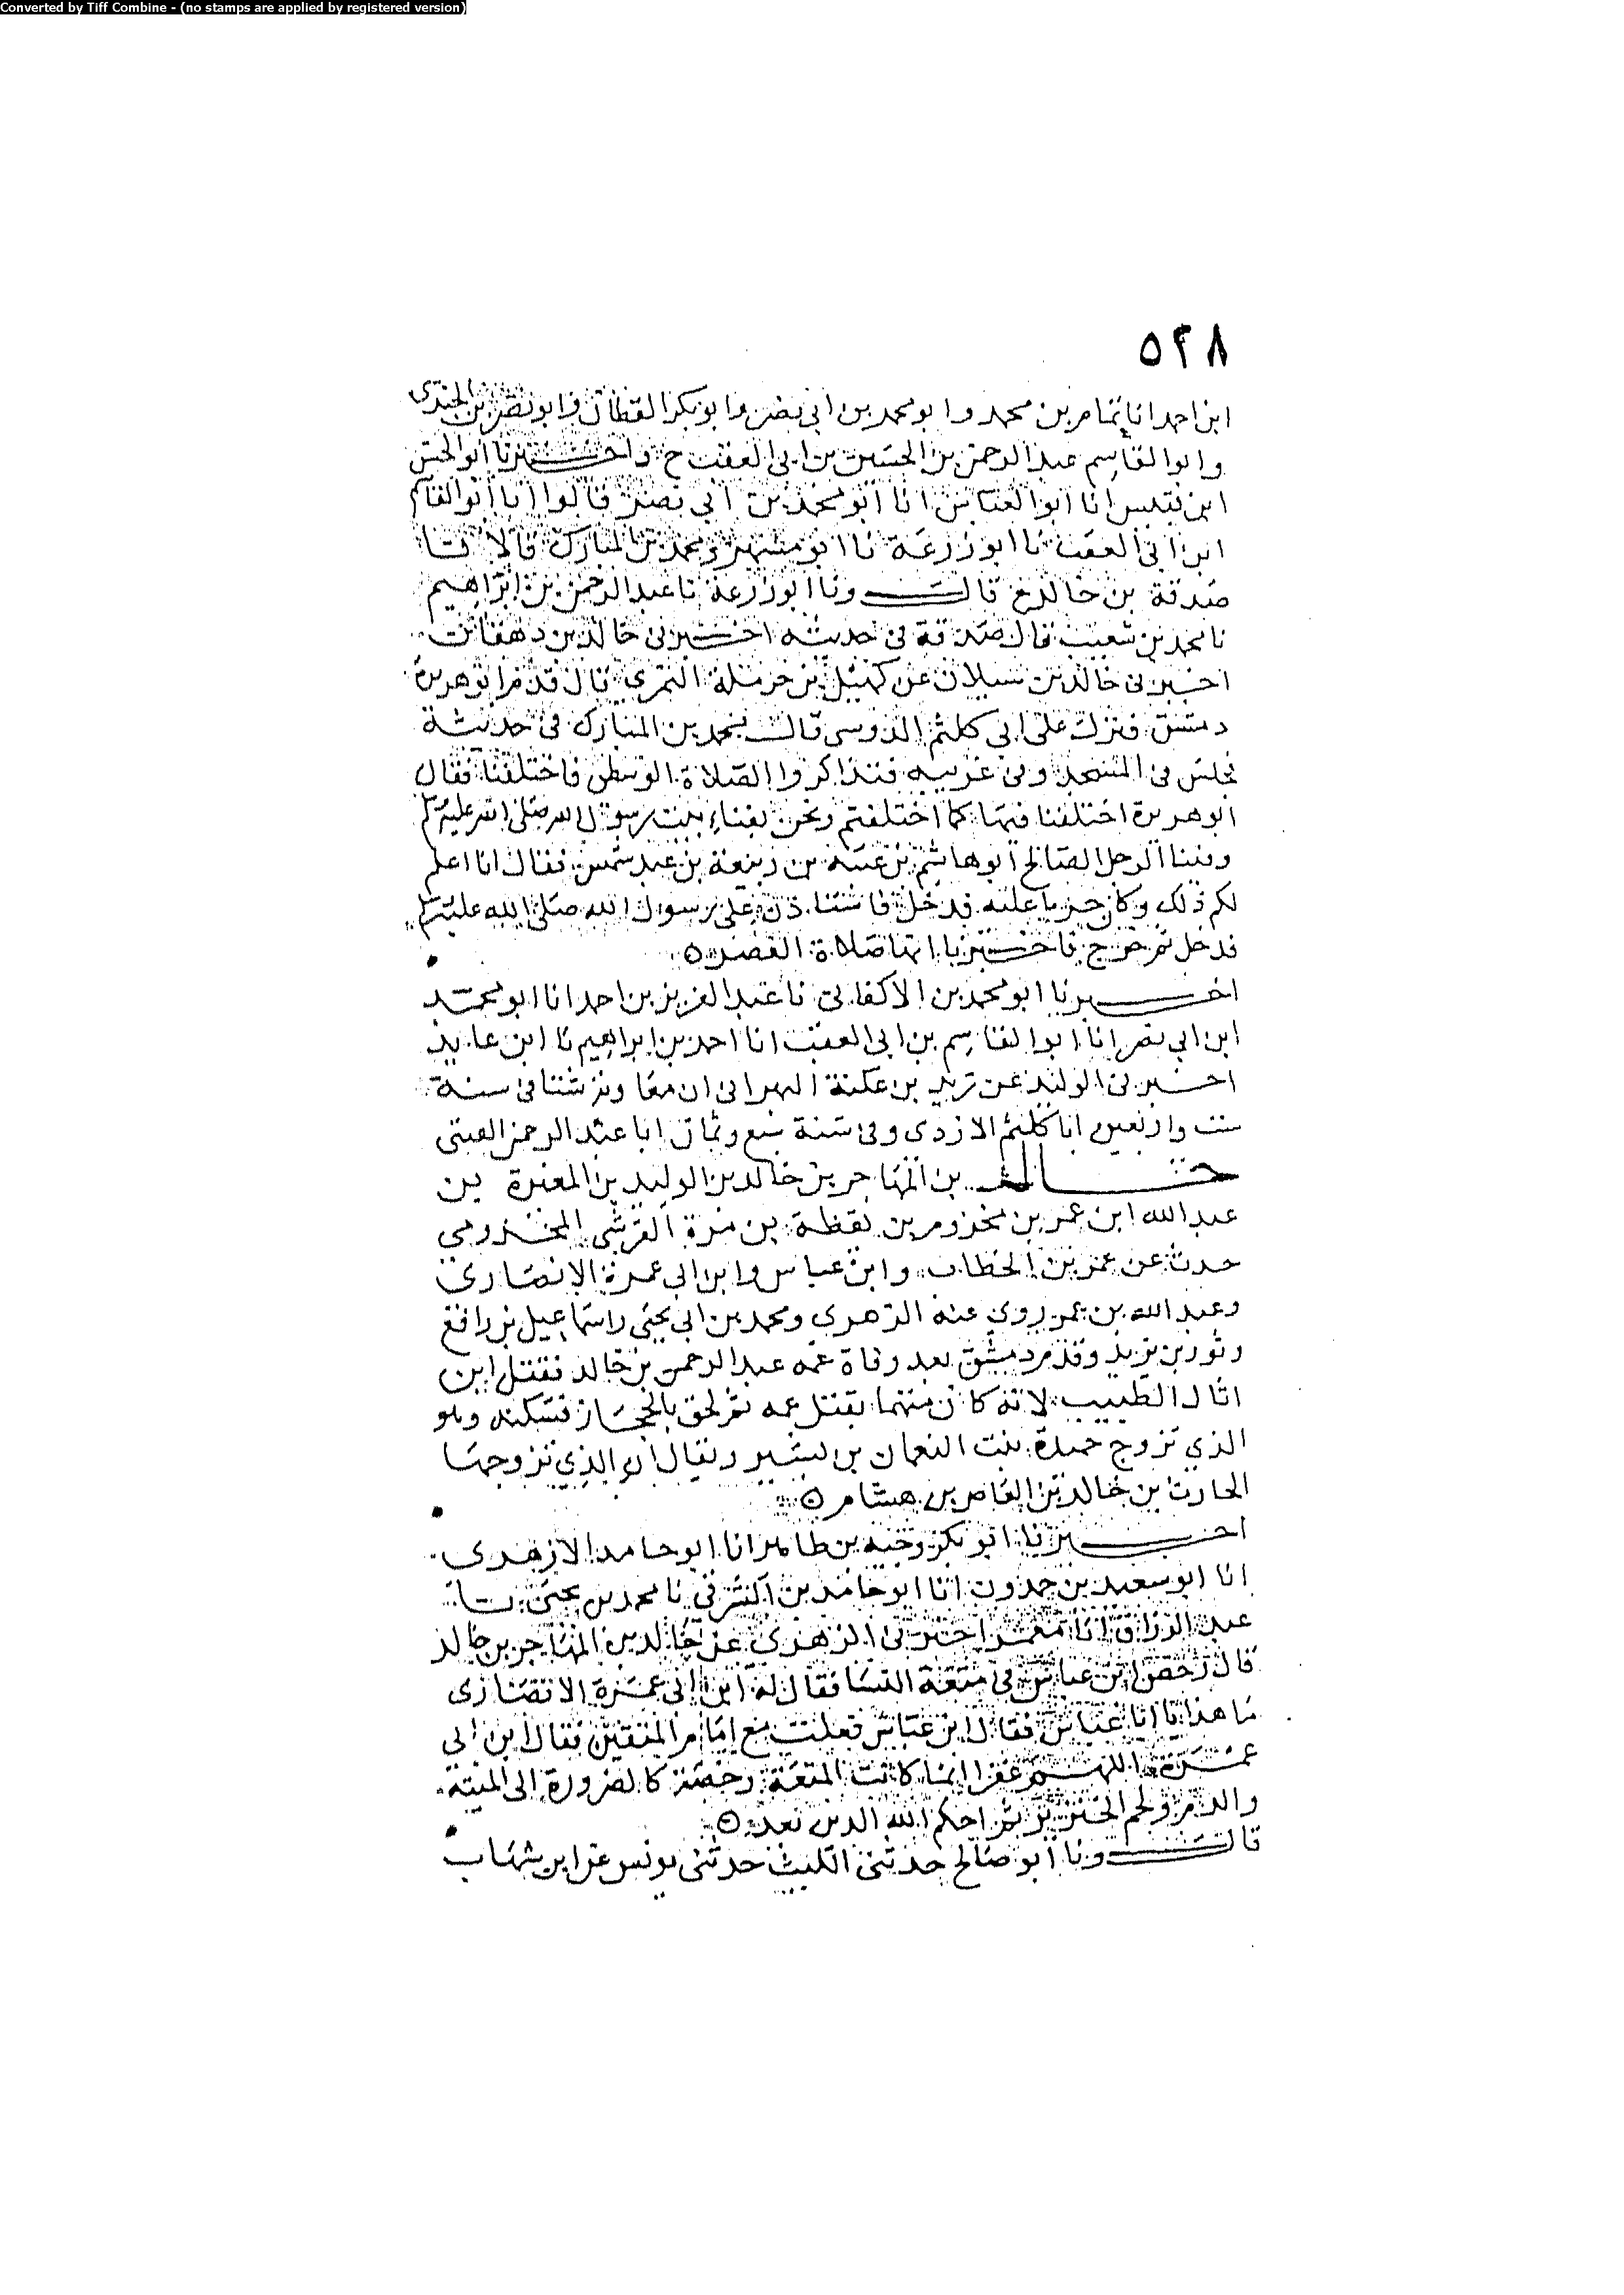 Converted by Tiff Combine - (no stamps are applied by registered version)
٥٢٨
ابن احمد انا تمام بن محمد وابو محمد بن ابي نصر وابو بكر القطان وابو نصر بن الجندي
وابو القاسم عبد الرحمن بن الحسين بن ابي العقب ح واخبرنا ابو الحسن
ابن قبيس انا ابو العباس انا ابو محمد بن ابي نصر قالوا انا ابو القاسم
ابن ابي العقب نا ابو زرعة نا ابو مسهر ومحمد بن المبارك قالا نا
صدقة بن خالد ح قال ونا ابو زرعة نا عبد الرحمن بن ابراهيم
نا محمد بن شعيب قال صدقة في حديثه اخبرني خالد بن دهقان
اخبرني خالد بن سبلان عن كهيل بن حرملة النمري قال قدم ابو هريرة
دمشق فنزل على ابي كلثم الدوسي قال محمد بن المبارك في حديثه
فجلس في المسجد وفي غربيه فتذاكروا الصلاة الوسطى فاختلفنا فقال
ابو هريرة اختلفنا فيها كما اختلفتم ونحن بفناء بيت رسول الله صلى الله عليه وسلم
وفينا الرجل الصالح ابو هاشم بن عتبة بن ربيعة بن عبد شمس فقال انا اعلم
لكم ذلك وكان جريا عليه فدخل فاستاذن على رسول الله صلى الله عليه وسلم
فدخل ثم خرج فاخبرنا انها صلاة العصر ه
اخبرنا ابو محمد بن الاكفاني نا عبد العزيز بن احمد انا ابو محمد
ابن ابي نصر انا ابو القاسم بن ابي العقب انا احمد بن ابراهيم نا ابن عايذ
اخبرني الوليد عن يزيد بن البهراني ان معا وية شتا في سنة
ست واربعين ابا كلثم الازدي وفي سنة سبع وثمان ابا عبد الرحمن القيني
خالد بن المهاجر بن خالد بن الوليد بن المغيرة بن
عبد الله ابن عمر بن مخزوم بن يقظة بن مرة القرشي المخزومي
حدث عن عمر بن الخطاب وابن عباس وابن ابي عمرة الانصاري
وعبد الله بن عمر روى عنه الزهري ومحمد بن ابي يحيى واسماعيل بن رافع
وثور بن يزيد وقدم دمشق بعد وفاة عمه عبد الرحمن بن خالد فقتل ابن
اثال الطبيب لانه كان متهما بقتل عمه ثم لحق بالحجاز فسكنه وهو
الذي تزوج حميدة بنت النعمان بن بشير ويقال ان الذي تزوجها
الحارث بن خالد بن العاص بن هشام ه
اخبرنا ابو بكر وجيه بن طاهر انا ابو حامد الازهري
انا ابو سعيد بن حمدون انا ابو حامد بن الشرقي نا محمد بن يحيى نا
عبد الرزاق انا معمر اخبرني الزهري عن خالد بن المهاجر بن خالد
قال رخص ابن عباس في متعة النسا فقال له ابن ابي عمرة الانصاري
ما هذا يا ابا عباس فقال ابن عباس فعلت مع امام المتقين فقال ابن ابي
عمرة اللهم غفرا انما كانت المتعة رخصة كالضرورة الى الميتة
والدم ولحم الخنزير ثم احكم الله الدين بعد ه
قال ونا ابو صالح حدثني الليث حدثني يونس عن ابن شهاب